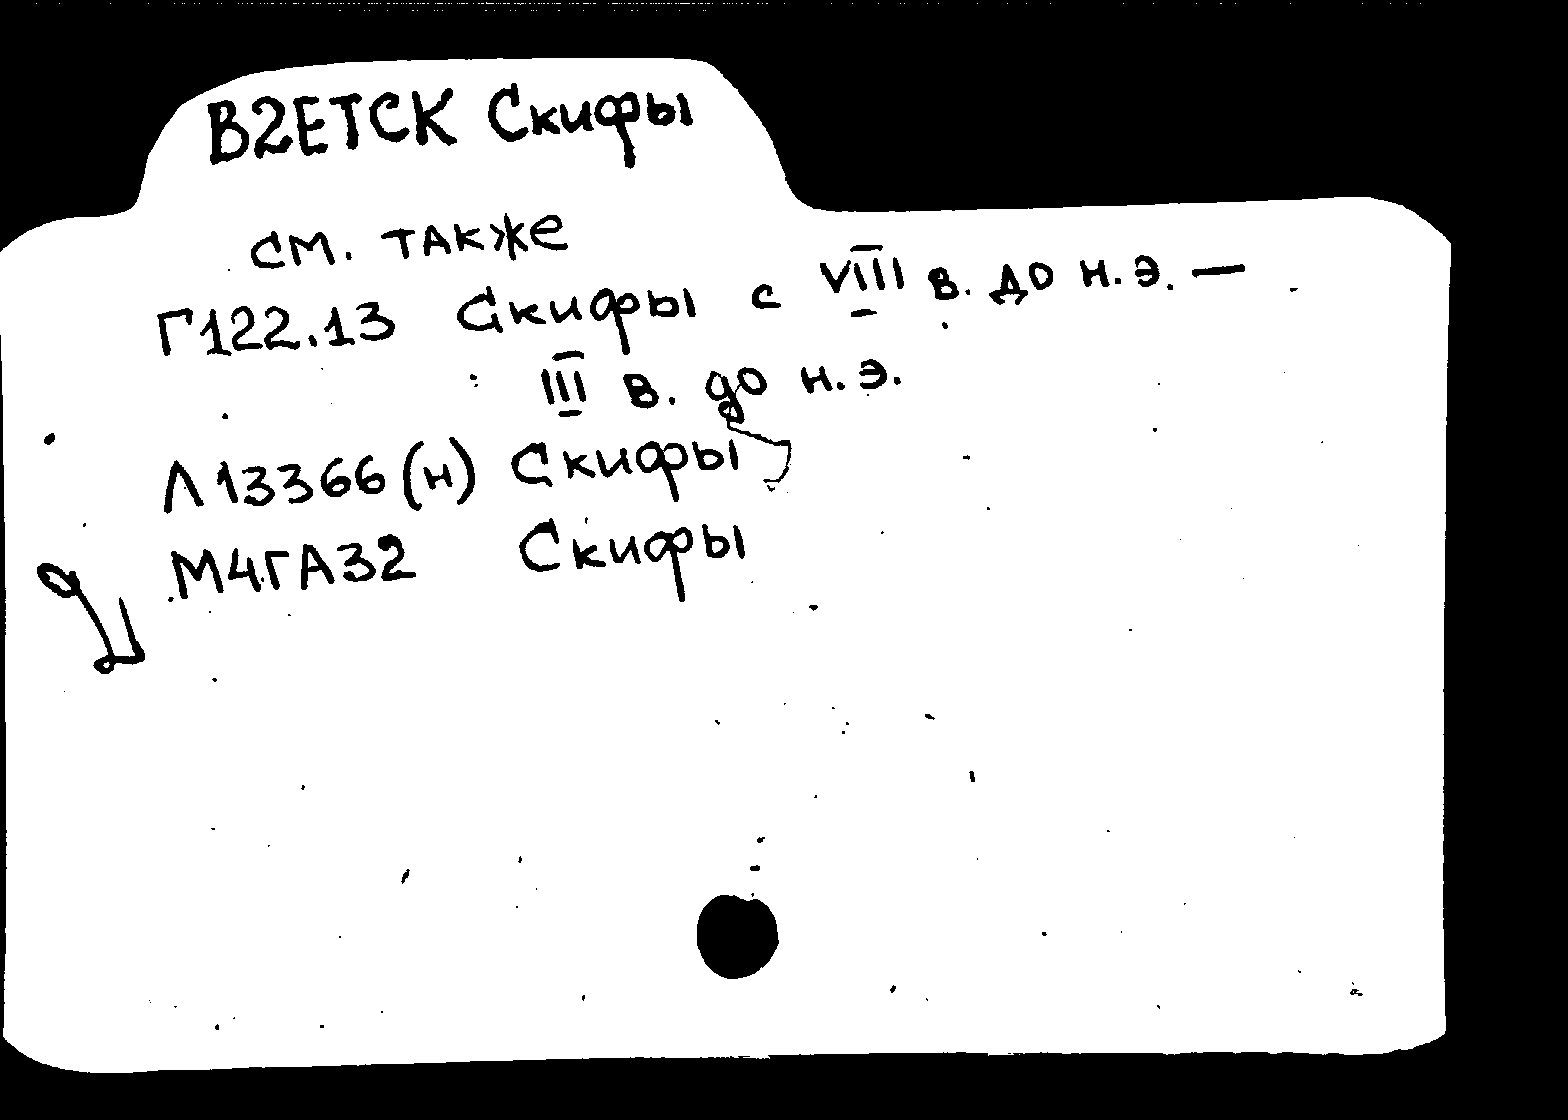 В2ЕТСК Скифы
см. также
Г122.13 Скифы с VIII в. до н.э. —
III в. до н.э.
Л13366(н) Скифы
М4ГА32 Скифы